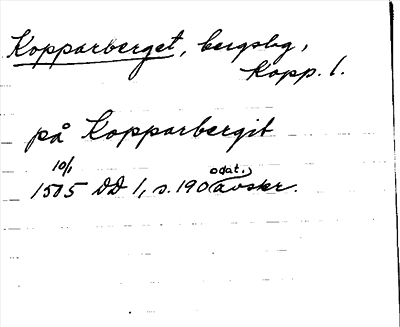 Kopparberget, bergslag,
Kopp. l.
på Kopparbergit
10/1
1515 DD 1, s. 190 avskr.
odat.